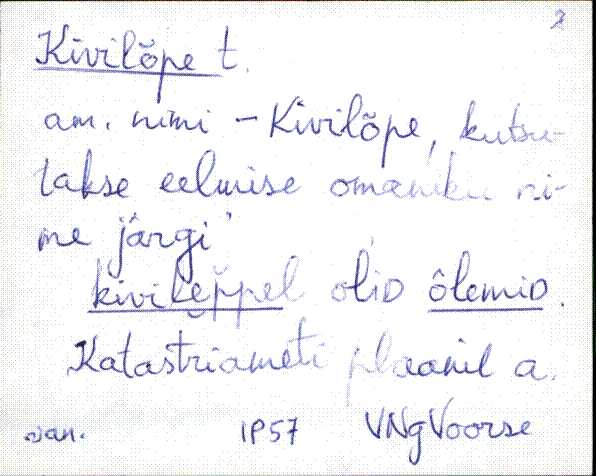 2
Kivilõpe t.
am. nimi – Kivilõpe, kutsu-
takse eelmise omaniku ni-
me järgi
kivileppel olid õlemid.
Katastriameti plaanil a.
1957 VNg Voorse